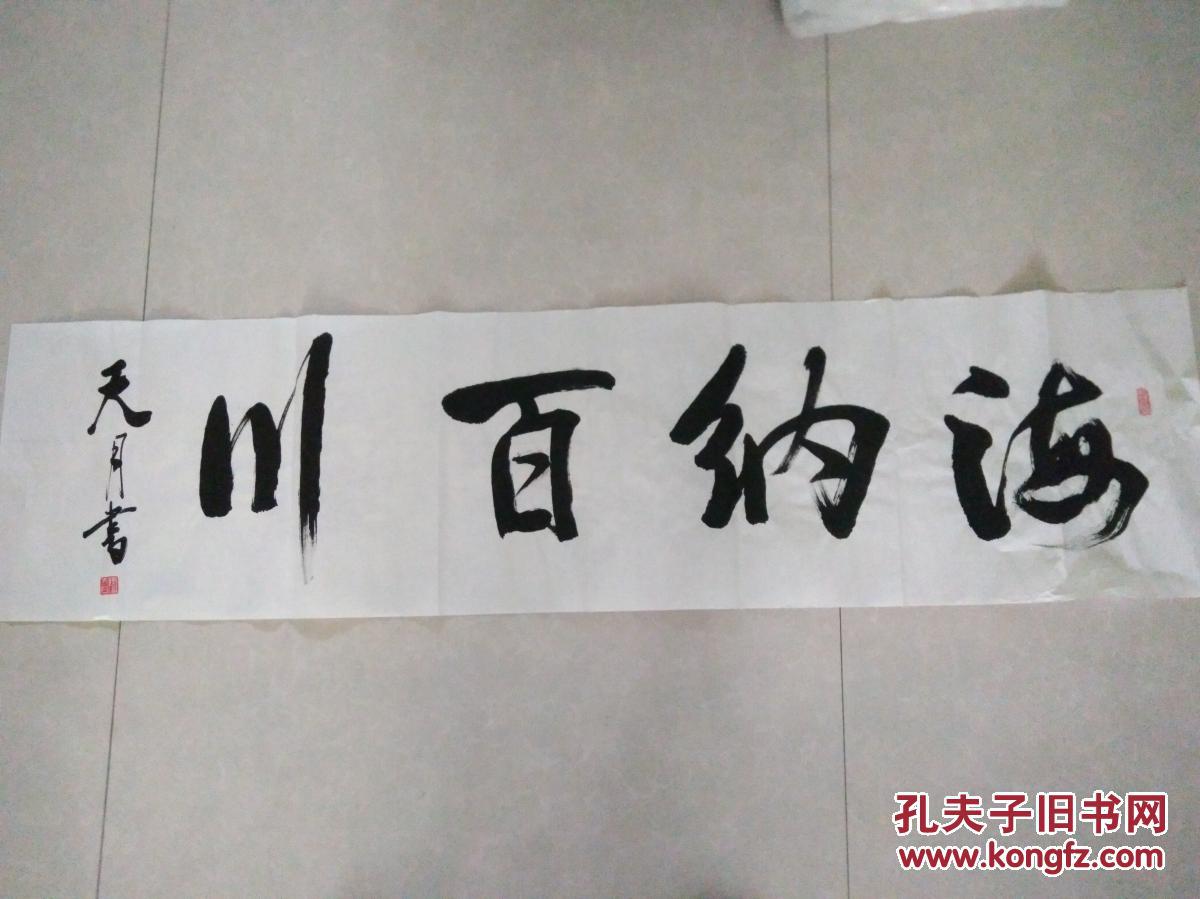 海纳百川
天月書
孔夫子旧书网
www.kongfz.com